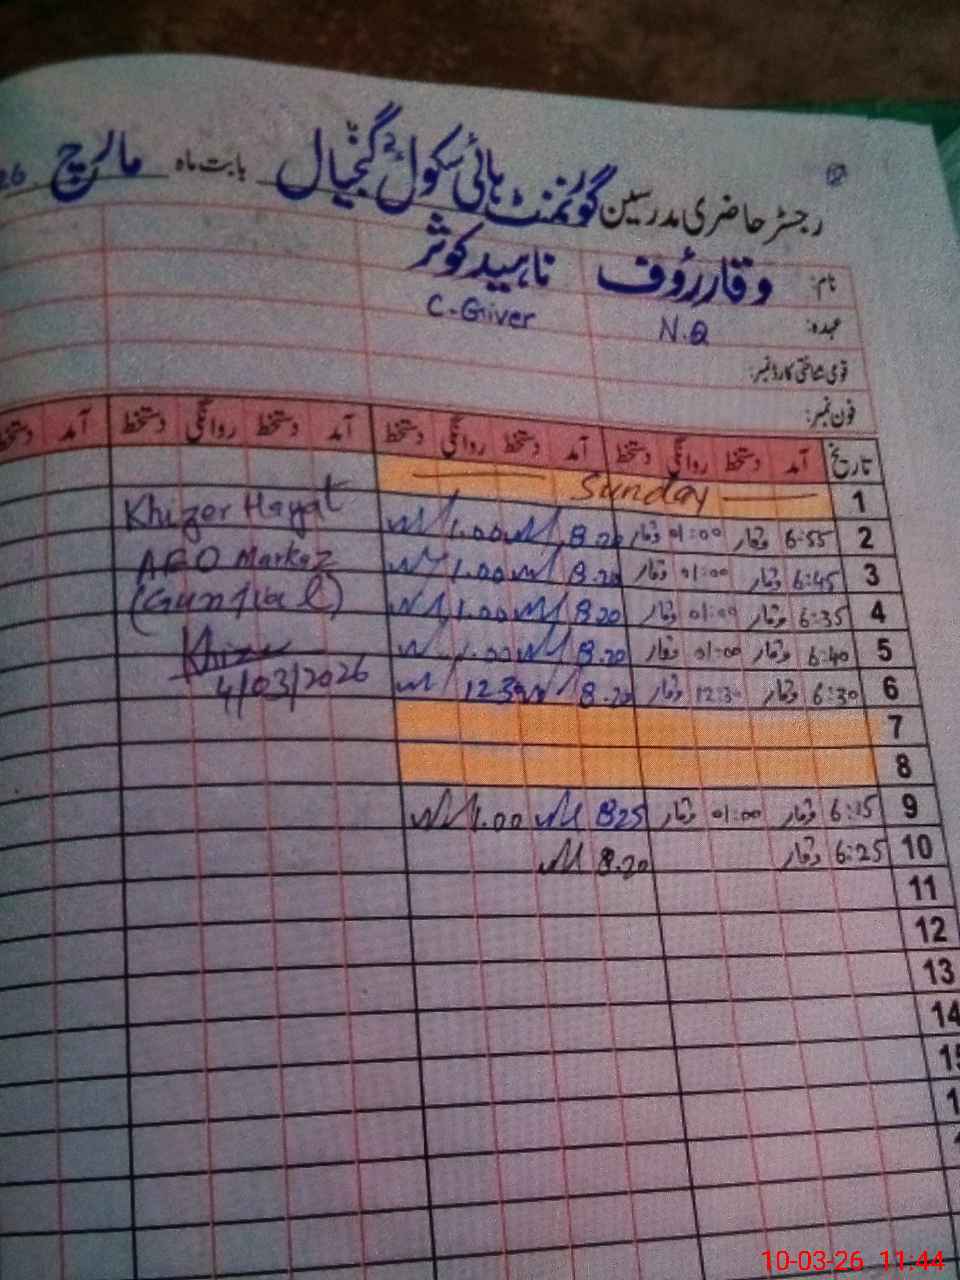 رجسٹر حاضری مدرسین گورنمنٹ ہائی سکول 2 گنجیال بابت ماہ مارچ 26
نام: وقار رؤف ناہید کوثر
عہدہ: N.Q C-Giver
قومی شناختی کارڈ نمبر:
فون نمبر:
تاریخ آمد دستخط روانگی دستخط آمد دستخط روانگی دستخط آمد دستخط روانگی دستخط آمد دستخط
1 Sunday
2 6:55 وقار 01:00 وقار 8.20 1.00 Khizer Hayat
3 6:45 وقار 01:00 وقار 8.20 1.00 AEO Markaz
4 6:35 وقار 01:00 وقار 8.20 1.00 (Gunjial)
5 6:40 وقار 01:00 وقار 8.20 1.00 Khizer
6 6:30 وقار 12:30 وقار 8.20 12.30 4/03/2026
7
8
9 6:15 وقار 01:00 وقار 8.25 1.00
10 6:25 وقار 8.20
11
12
13
14
15
10-03-26 11:44